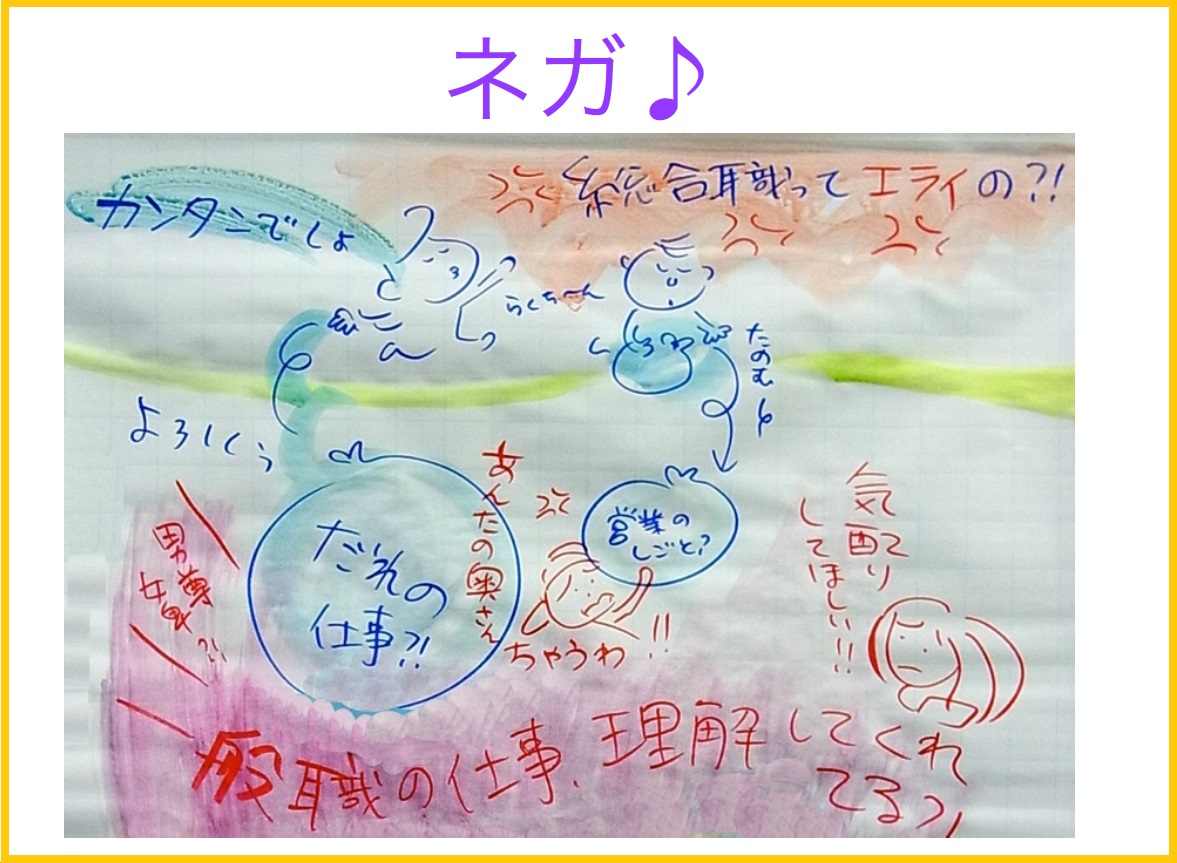 ネガ♪
総合職ってエライの?!
カンタンでしょ
らくちーん
たのむゆ
よろしくぅ
だれの
仕事?!
あんたの奥さん
ちゃうわ!!
営業の
しごと?
気配り
してほしい!!
男尊
女卑?!
一般職の仕事、理解してくれ
てるっ